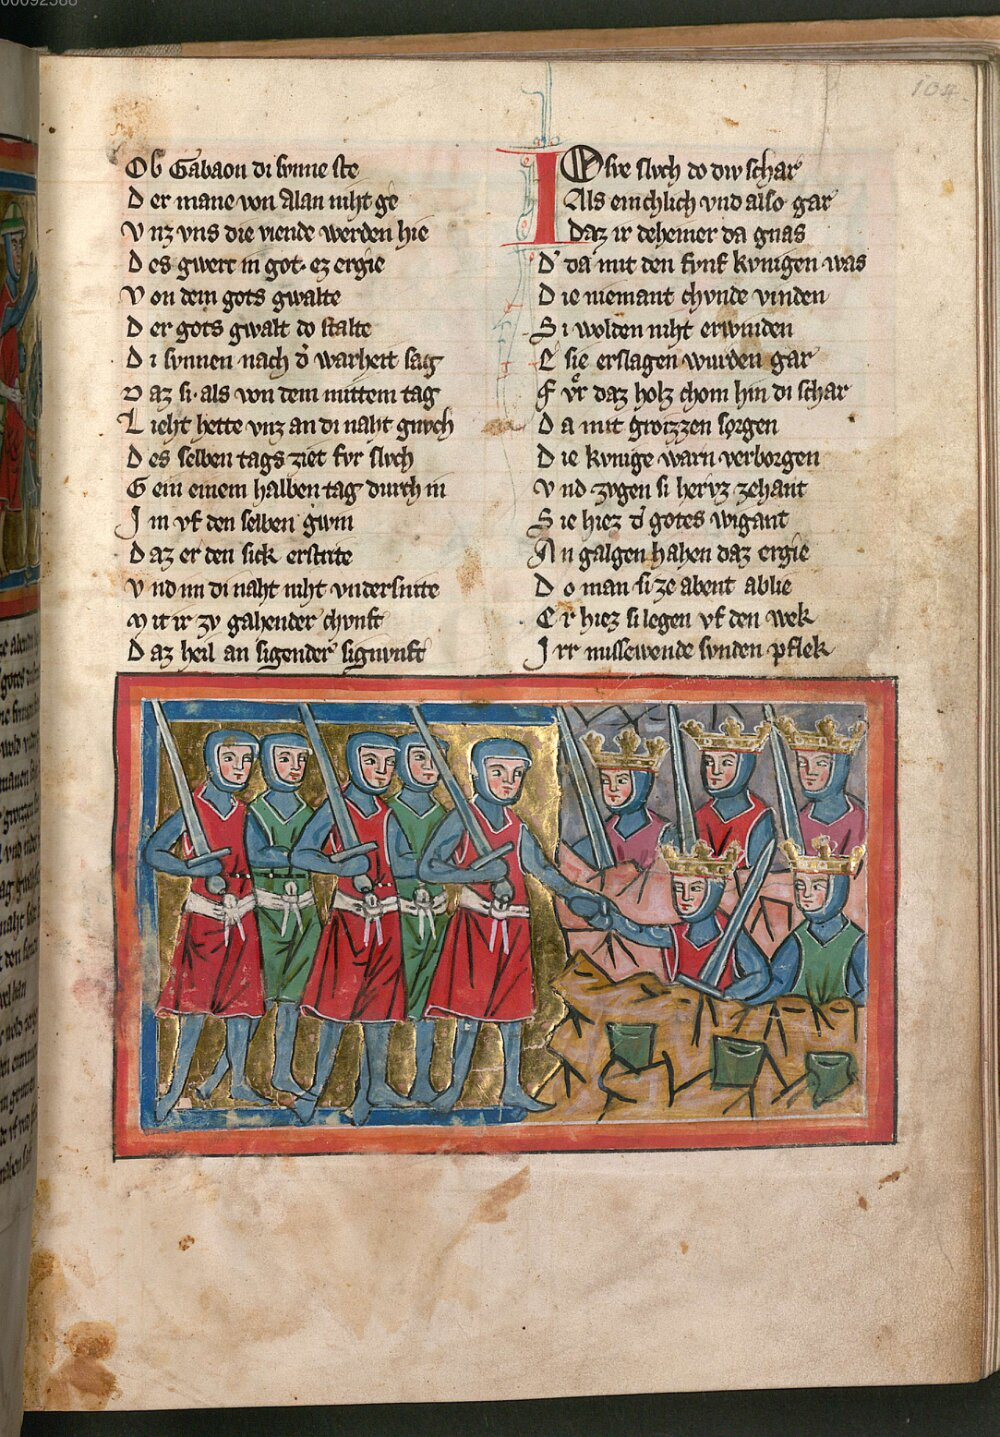 00092588
104
Ob Gabaon di sunne ste
Der mane von Alan niht ge
Vnz vns die viende werden hie
Des gwert in got · ez ergie
Von dem gots gwalte
Der gots gwalt do stalte
Di sunnen nach d̾ warheit sag
Daz si · als von dem mittem tag
Lieht hette vnz an di naht gnvch
Des selben tags ziet fvr slvch
Gein einem halben tag durch in
Im vf den selben gwin
Daz er den sick erstrite
Vnd im di naht niht vndersnite
Mit ir zv gahender chvnft
Daz heil an sigender signvnft
IOsve slvch do div schar
Als einchlich vnd also gar
Daz ir deheiner da gnas
D̾ da mit den fvnf kvnigen was
Die niemant chvnde vinden
Si wolden niht erwinden
E sie erslagen wurden gar
Fvͤr daz holz chom hin di schar
Da mit grozzen sorgen
Die kvnige warn verborgen
Vnd zvgen si hervz zehant
Sie hiez d̾ gotes wigant
An galgen hahen daz ergie
Do man si ze abent ablie
Er hiez si legen vf den wek
Irr missewende svnden pflek